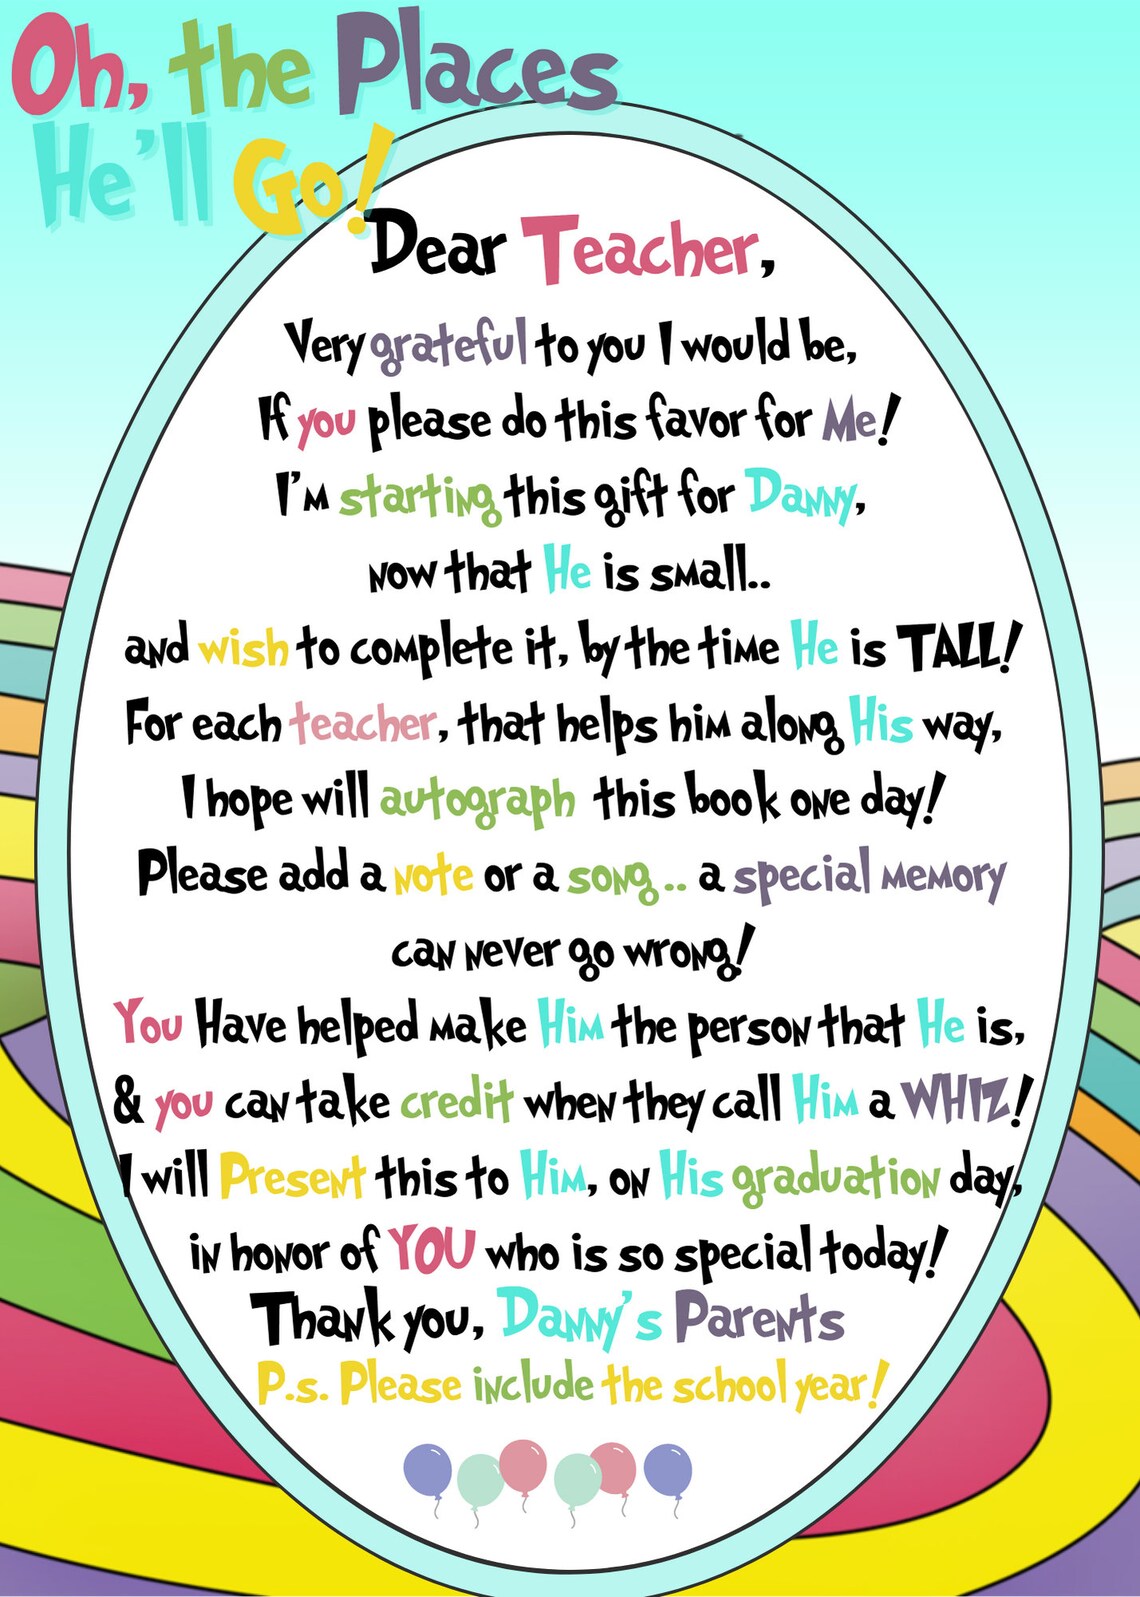 Oh, the Places
He'll Go!
Dear Teacher,
Very grateful to you I would be,
If you please do this favor for Me!
I'm starting this gift for Danny,
now that He is small..
and wish to complete it, by the time He is TALL!
For each teacher, that helps him along His way,
I hope will autograph this book one day!
Please add a note or a song.. a special memory
can never go wrong!
You Have helped make Him the person that He is,
& you can take credit when they call Him a WHIZ!
I will Present this to Him, on His graduation day,
in honor of YOU who is so special today!
Thank you, Danny's Parents
P.s. Please include the school year!